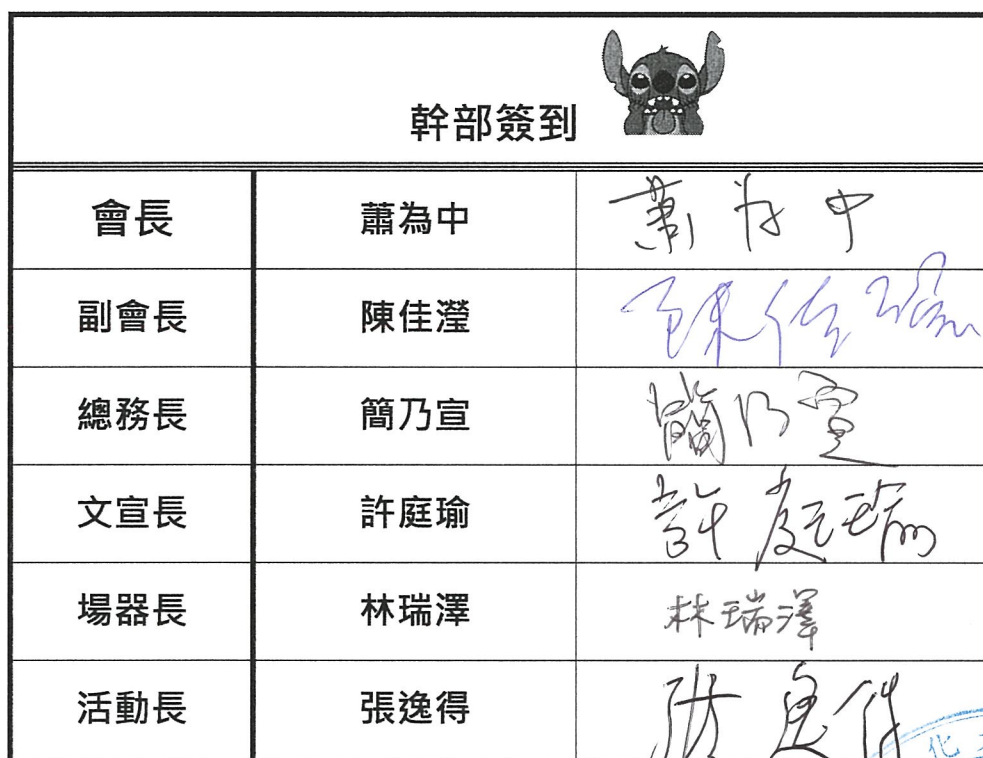 幹部簽到
會長 蕭為中 蕭為中
副會長 陳佳瀅 陳佳瀅
總務長 簡乃宣 簡乃宣
文宣長 許庭瑜 許庭瑜
場器長 林瑞澤 林瑞澤
活動長 張逸得 張逸得
化